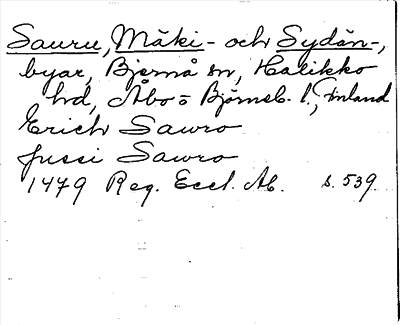 Sauru, Mäki- och Sydän-,
byar, Bjernå sn, Halikko
hd, Åbo o Björneb. l., Finland
Erich Sawro
Jussi Sawro
1479 Reg. Eccl. Ab. s. 539